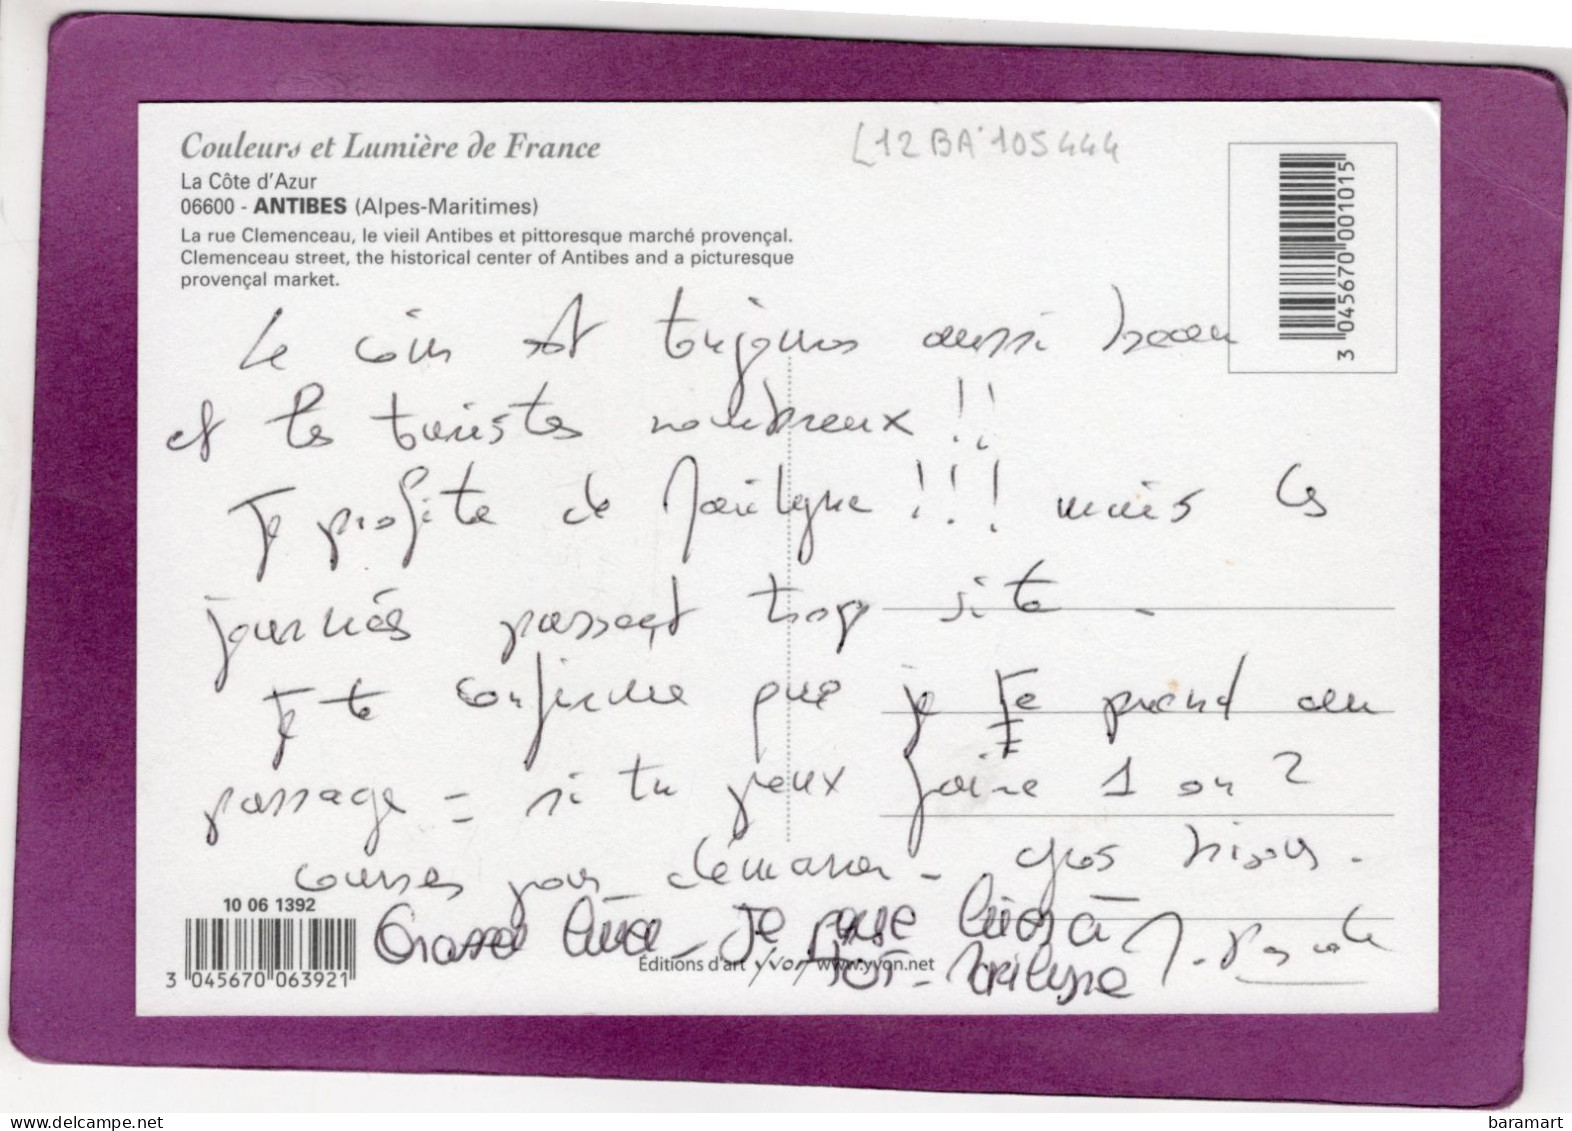 Couleurs et Lumière de France
[12BA·105444
La Côte d'Azur
06600 - ANTIBES (Alpes-Maritimes)
La rue Clemenceau, le vieil Antibes et pittoresque marché provençal.
Clemenceau street, the historical center of Antibes and a picturesque
provençal market.
3 045670 001015
Le coin est toujours aussi beau
et les touristes nombreux !!
Je profite de Marilyne !!! mais les
journées passent trop vite -
Je te confirme que je te prend au
passage = si tu veux faire 1 ou 2
courses pour démarrer - gros bisous.
10 06 1392
3 045670 063921
Grosse bise - Je pense bien à
toi - Marilyne
Éditions d'art yvon www.yvon.net